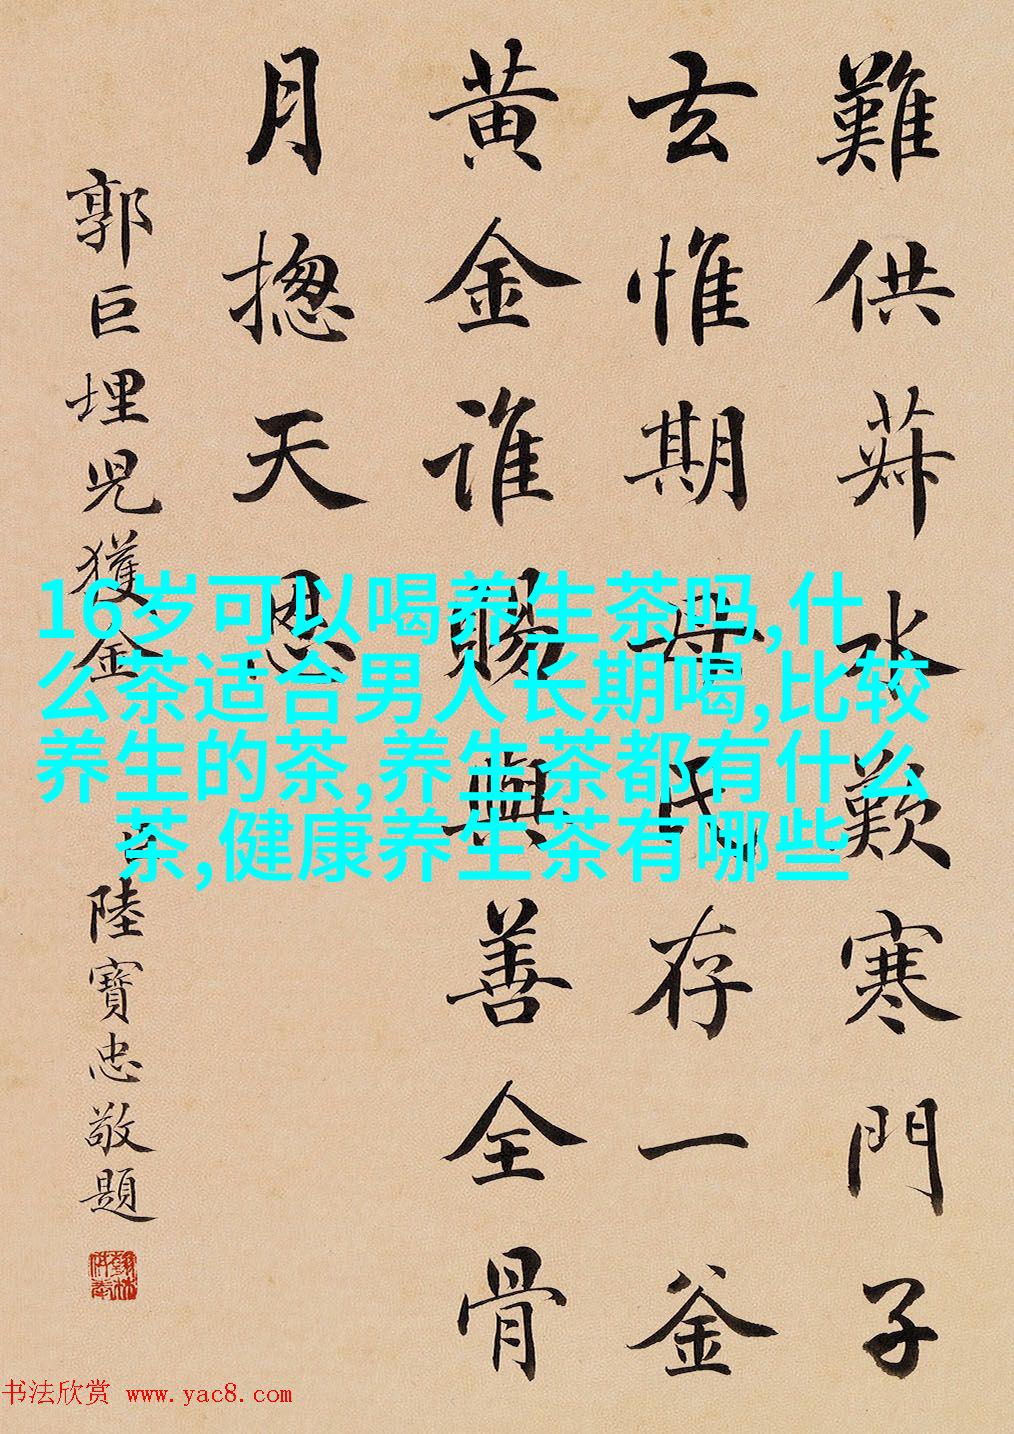 難供菽水歎寒門子
玄惟期母氏存一釜
黄金誰賜與善全骨
月摠天恩
郭巨埋児獲金
臣陸寶忠敬題
16岁可以喝养生茶吗,什
么茶适合男人长期喝,比较
养生的茶,养生茶都有什么
茶,健康养生茶有哪些
书法欣赏 www.yac8.com